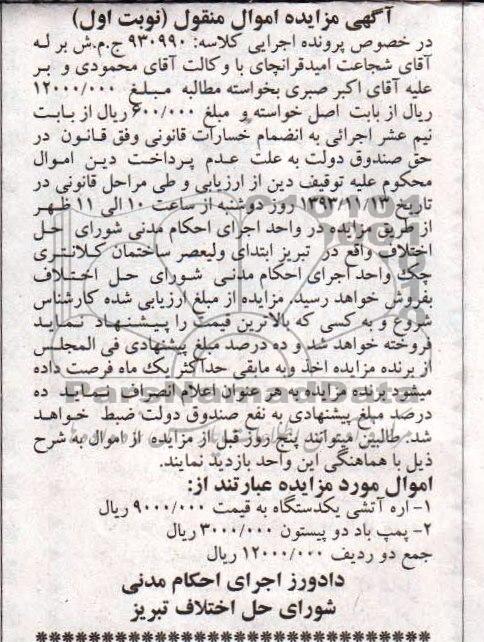 آگهی مزایده اموال منقول (نوبت اول)
در خصوص پرونده اجرایی کلاسه: ۹۳۰۹۹۰ ج.م.ش بر له
آقای شجاعت امیدقرانچای با وکالت آقای محمودی و بر
علیه آقای اکبر صبری بخواسته مطالبه مبلغ ۱۲۰۰۰/۰۰۰
ریال از بابت اصل خواسته و مبلغ ۶۰۰/۰۰۰ ریال از بابت
نیم عشر اجرائی به انضمام خسارات قانونی وفق قانون در
حق صندوق دولت به علت عدم پرداخت دین اموال
محکوم علیه توقیف دین از ارزیابی و طی مراحل قانونی در
تاریخ ۱۳۹۳/۱۱/۱۳ روز دوشنبه از ساعت ۱۰ الی ۱۱ ظهر
از طریق مزایده در واحد اجرای احکام مدنی شورای حل
اختلاف واقع در تبریز ابتدای ولیعصر ساختمان کلانتری
چک واحد اجرای احکام مدنی شورای حل اختلاف
بفروش خواهد رسید. مزایده از مبلغ ارزیابی شده کارشناس
شروع و به کسی که بالاترین قیمت را پیشنهاد نماید
فروخته خواهد شد و ده درصد مبلغ پیشنهادی فی المجلس
از برنده مزایده اخذ و به مابقی حداکثر یک ماه فرصت داده
میشود برنده مزایده به هر عنوان اعلام انصراف نماید ده
درصد مبلغ پیشنهادی به نفع صندوق دولت ضبط خواهد
شد. طالبین میتوانند پنج روز قبل از مزایده از اموال به شرح
ذیل با هماهنگی این واحد بازدید نمایند.
اموال مورد مزایده عبارتند از:
۱- اره آتشی یکدستگاه به قیمت ۹۰۰۰/۰۰۰ ریال
۲- پمپ باد دو پیستون ۳۰۰۰/۰۰۰ ریال
جمع دو ردیف ۱۲۰۰۰/۰۰۰ ریال
دادورز اجرای احکام مدنی
شورای حل اختلاف تبریز
ParsNamadData